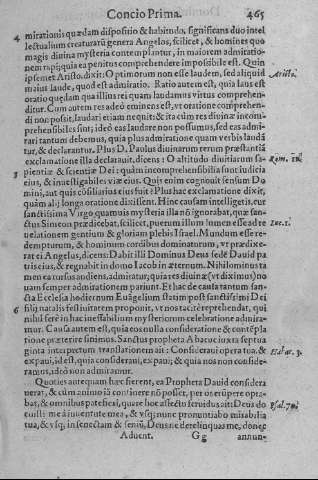 Concio Prima. 465
4 mirationis quædam dispositio & habitudo, significans duo intel
lectualium creaturarū genera Angelos, scilicet, & homines quo
magis divina mysteria contemplantur, in maiorem admiratio-
nem rapi; quia ea penitus comprehendere impossibile est. Quin
ipsemet Aristo. dixit: Optimorum non esse laudem, sed aliquid Aristo.
maius laude, quod est admiratio. Ratio autem est, quia laus est
oratio quædam qua illius rei quam laudamus virtus comprehen-
ditur. Cum autem res adeò eminens est, vt oratione comprehen-
di nō possit, laudari etiam nequit: & ita cùm res divinæ incom-
prehensibiles sint; ideò eas laudare non possumus, sed eas admi-
rari tantum debemus, quia plus admiratione quam verbis laudā
tur, & declarantur. Plus D. Paulus divinarum rerum præstantiā
exclamatione illa declarauit, dicens: O altitudo divitiarum sa- Rom.
5 pientiæ & scientiæ Dei: quàm incomprehensibilia sunt iudicia
eius, & inuestigabiles viæ eius. Quis enim cognouit sensum Do
mini, aut quis cōsiliarius eius fuit? Plus hac exclamatione dixit,
quàm longa oratione dixissent. Hinc causam intelligetis, cur
sanctissima Virgo quamuis mysteria illa nō ignorabat, quæ san-
ctus Simeon prædicebat, scilicet, puerum illum lumen esse ad re Luc.
uelationem gentium & gloriam plebis Israel. Mundum esse re-
dempturum, & hominum cordibus dominaturum, vt prædixe-
rat ei Angelus, dicens: Dabit illi Dominus Deus sedē Dauid pa
tris eius, & regnabit in domo Iacob in æternum. Nihilominus ta
men ea rursus audiens, admiratur, quia res diuinæ (vt diximus) no
uam semper admirationem pariunt. Et hac de causa tantum san-
cta Ecclesia hodiernum Euāgelium statim post sanctissimi Dei
6 filij natalis festiuitatem proponit, vt nos ita comprehendat, qui
nihil ferè in hac ineffabilium mysteriorum celebratione admira-
mur. Causa autem est, quia eos nulla consideratione & contēpla
tione præterire sinimus. Sanctus propheta Abacuc iuxta septua
ginta interpretum translationem ait: Consideraui opera tua, & Habac. 3.
expaui, id est, quia consideraui, expaui; & quia nos non conside-
ramus, ideò non admiramur.
Quoties autequam hæc fierent, ea Propheta Dauid considera
uerat, & cùm animo iā continere nō posset, per os erūpere opta-
bat, & omnibus patefieri, quare hoc affectu feruidus ait: Deus do Psal. 70.
cuisti me à iuuentute mea, & vsq; nunc pronuntiabo mirabilia
tua, & vsq; in senectam & seniū, Deus ne derelinquas me, donec
Aduent. Gg annun-